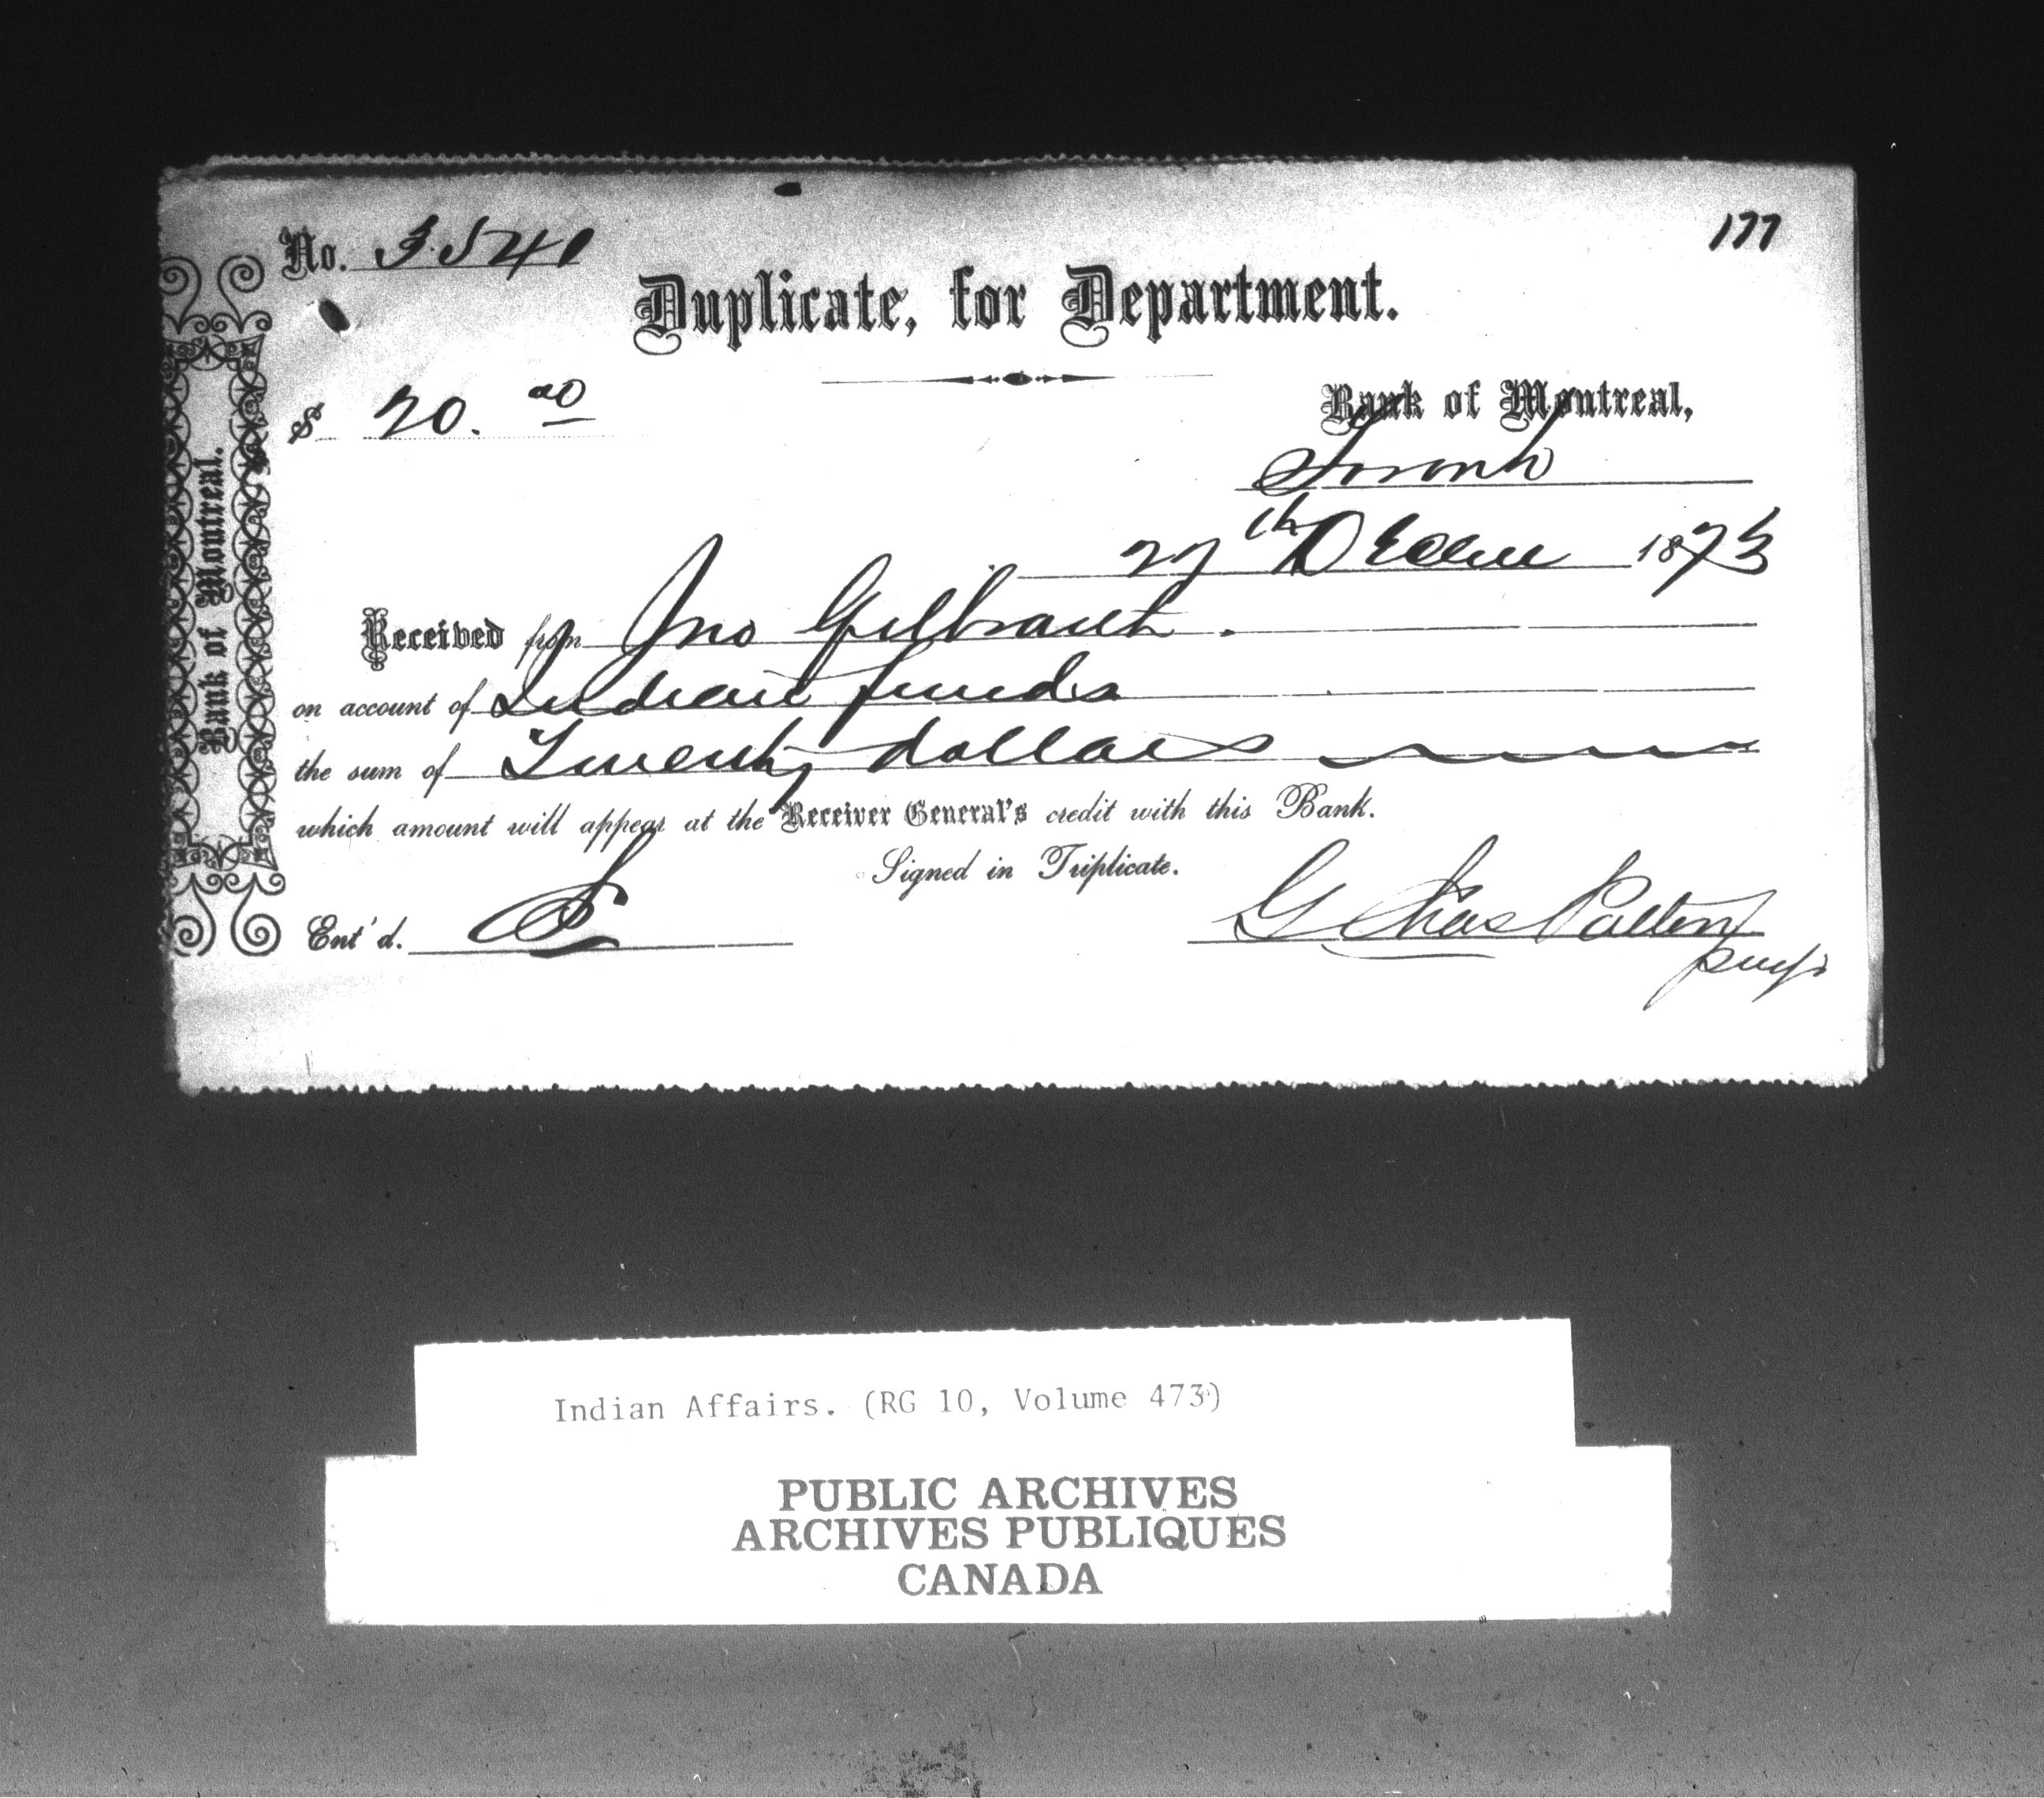 177
No. 3541
Duplicate, for Department.
$ 20.00
Bank of Montreal,
Toronto
27th Decem 1873
Received from Jno Gilbraith.
on account of Indian funds
the sum of Twenty dollars
which amount will appear at the Receiver General's credit with this Bank.
Signed in Triplicate.
Ent'd.
G Chas Patton
Bank of Montreal.
Indian Affairs. (RG 10, Volume 473)
PUBLIC ARCHIVES
ARCHIVES PUBLIQUES
CANADA